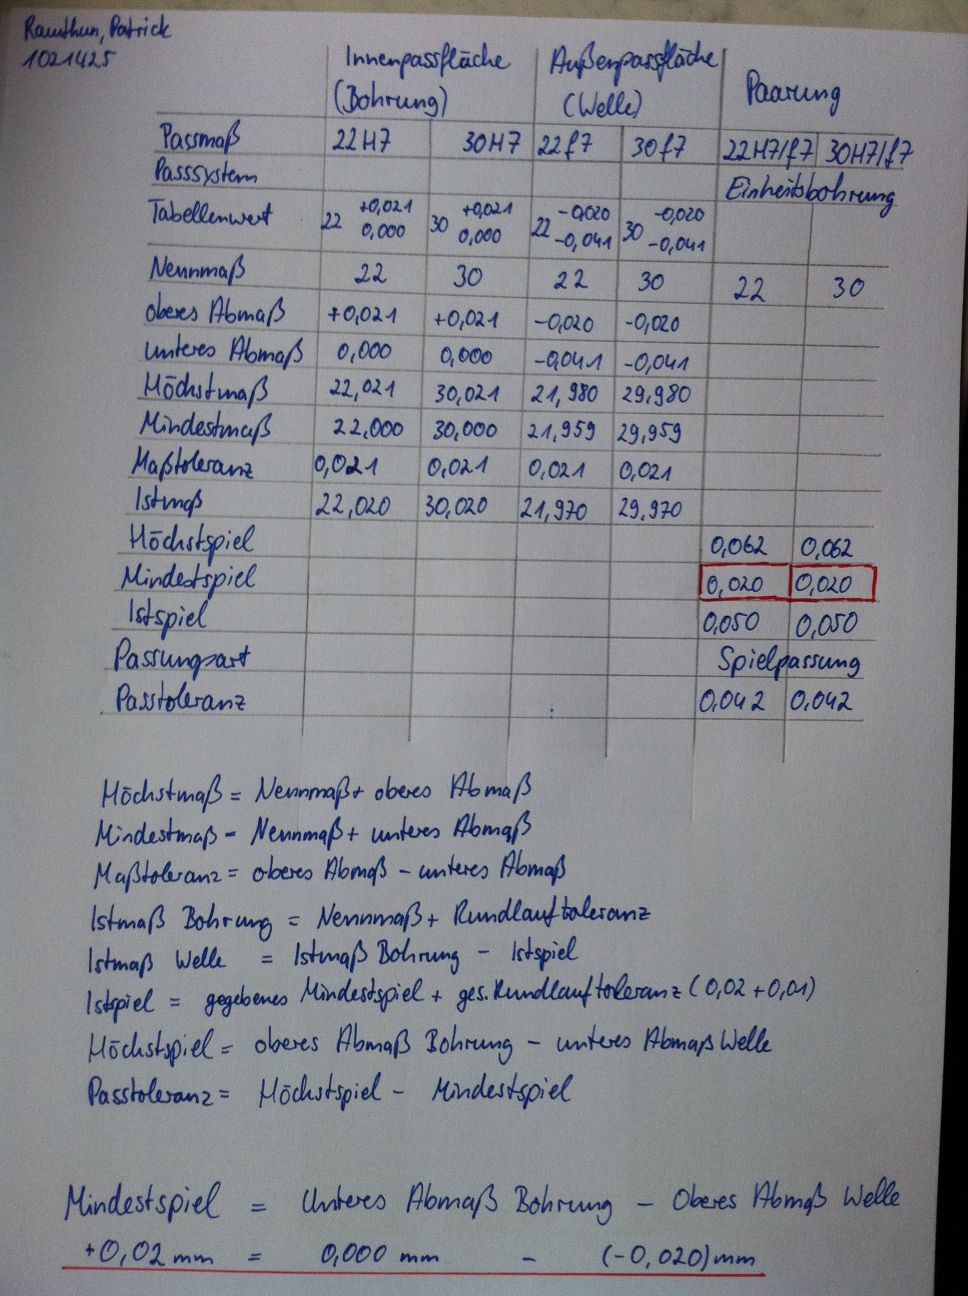 Ramthun, Patrick
1021425
Innenpassfläche Außenpassfläche Paarung
(Bohrung) (Welle)
Passmaß 22H7 30H7 22f7 30f7 22H7/f7 30H7/f7
Passsystem Einheitsbohrung
Tabellenwert 22 +0,021 0,000 30 +0,021 0,000 22 -0,020 -0,041 30 -0,020 -0,041
Nennmaß 22 30 22 30 22 30
oberes Abmaß +0,021 +0,021 -0,020 -0,020
unteres Abmaß 0,000 0,000 -0,041 -0,041
Höchstmaß 22,021 30,021 21,980 29,980
Mindestmaß 22,000 30,000 21,959 29,959
Maßtoleranz 0,021 0,021 0,021 0,021
Istmaß 22,020 30,020 21,970 29,970
Höchstspiel 0,062 0,062
Mindestspiel 0,020 0,020
Istspiel 0,050 0,050
Passungsart Spielpassung
Passtoleranz 0,042 0,042
Höchstmaß = Nennmaß + oberes Abmaß
Mindestmaß = Nennmaß + unteres Abmaß
Maßtoleranz = oberes Abmaß - unteres Abmaß
Istmaß Bohrung = Nennmaß + Rundlauftoleranz
Istmaß Welle = Istmaß Bohrung - Istspiel
Istspiel = gegebenes Mindestspiel + ges. Rundlauftoleranz (0,02 + 0,01)
Höchstspiel = oberes Abmaß Bohrung - unteres Abmaß Welle
Passtoleranz = Höchstspiel - Mindestspiel
Mindestspiel = Unteres Abmaß Bohrung - Oberes Abmaß Welle
+0,02 mm = 0,000 mm - (-0,020) mm